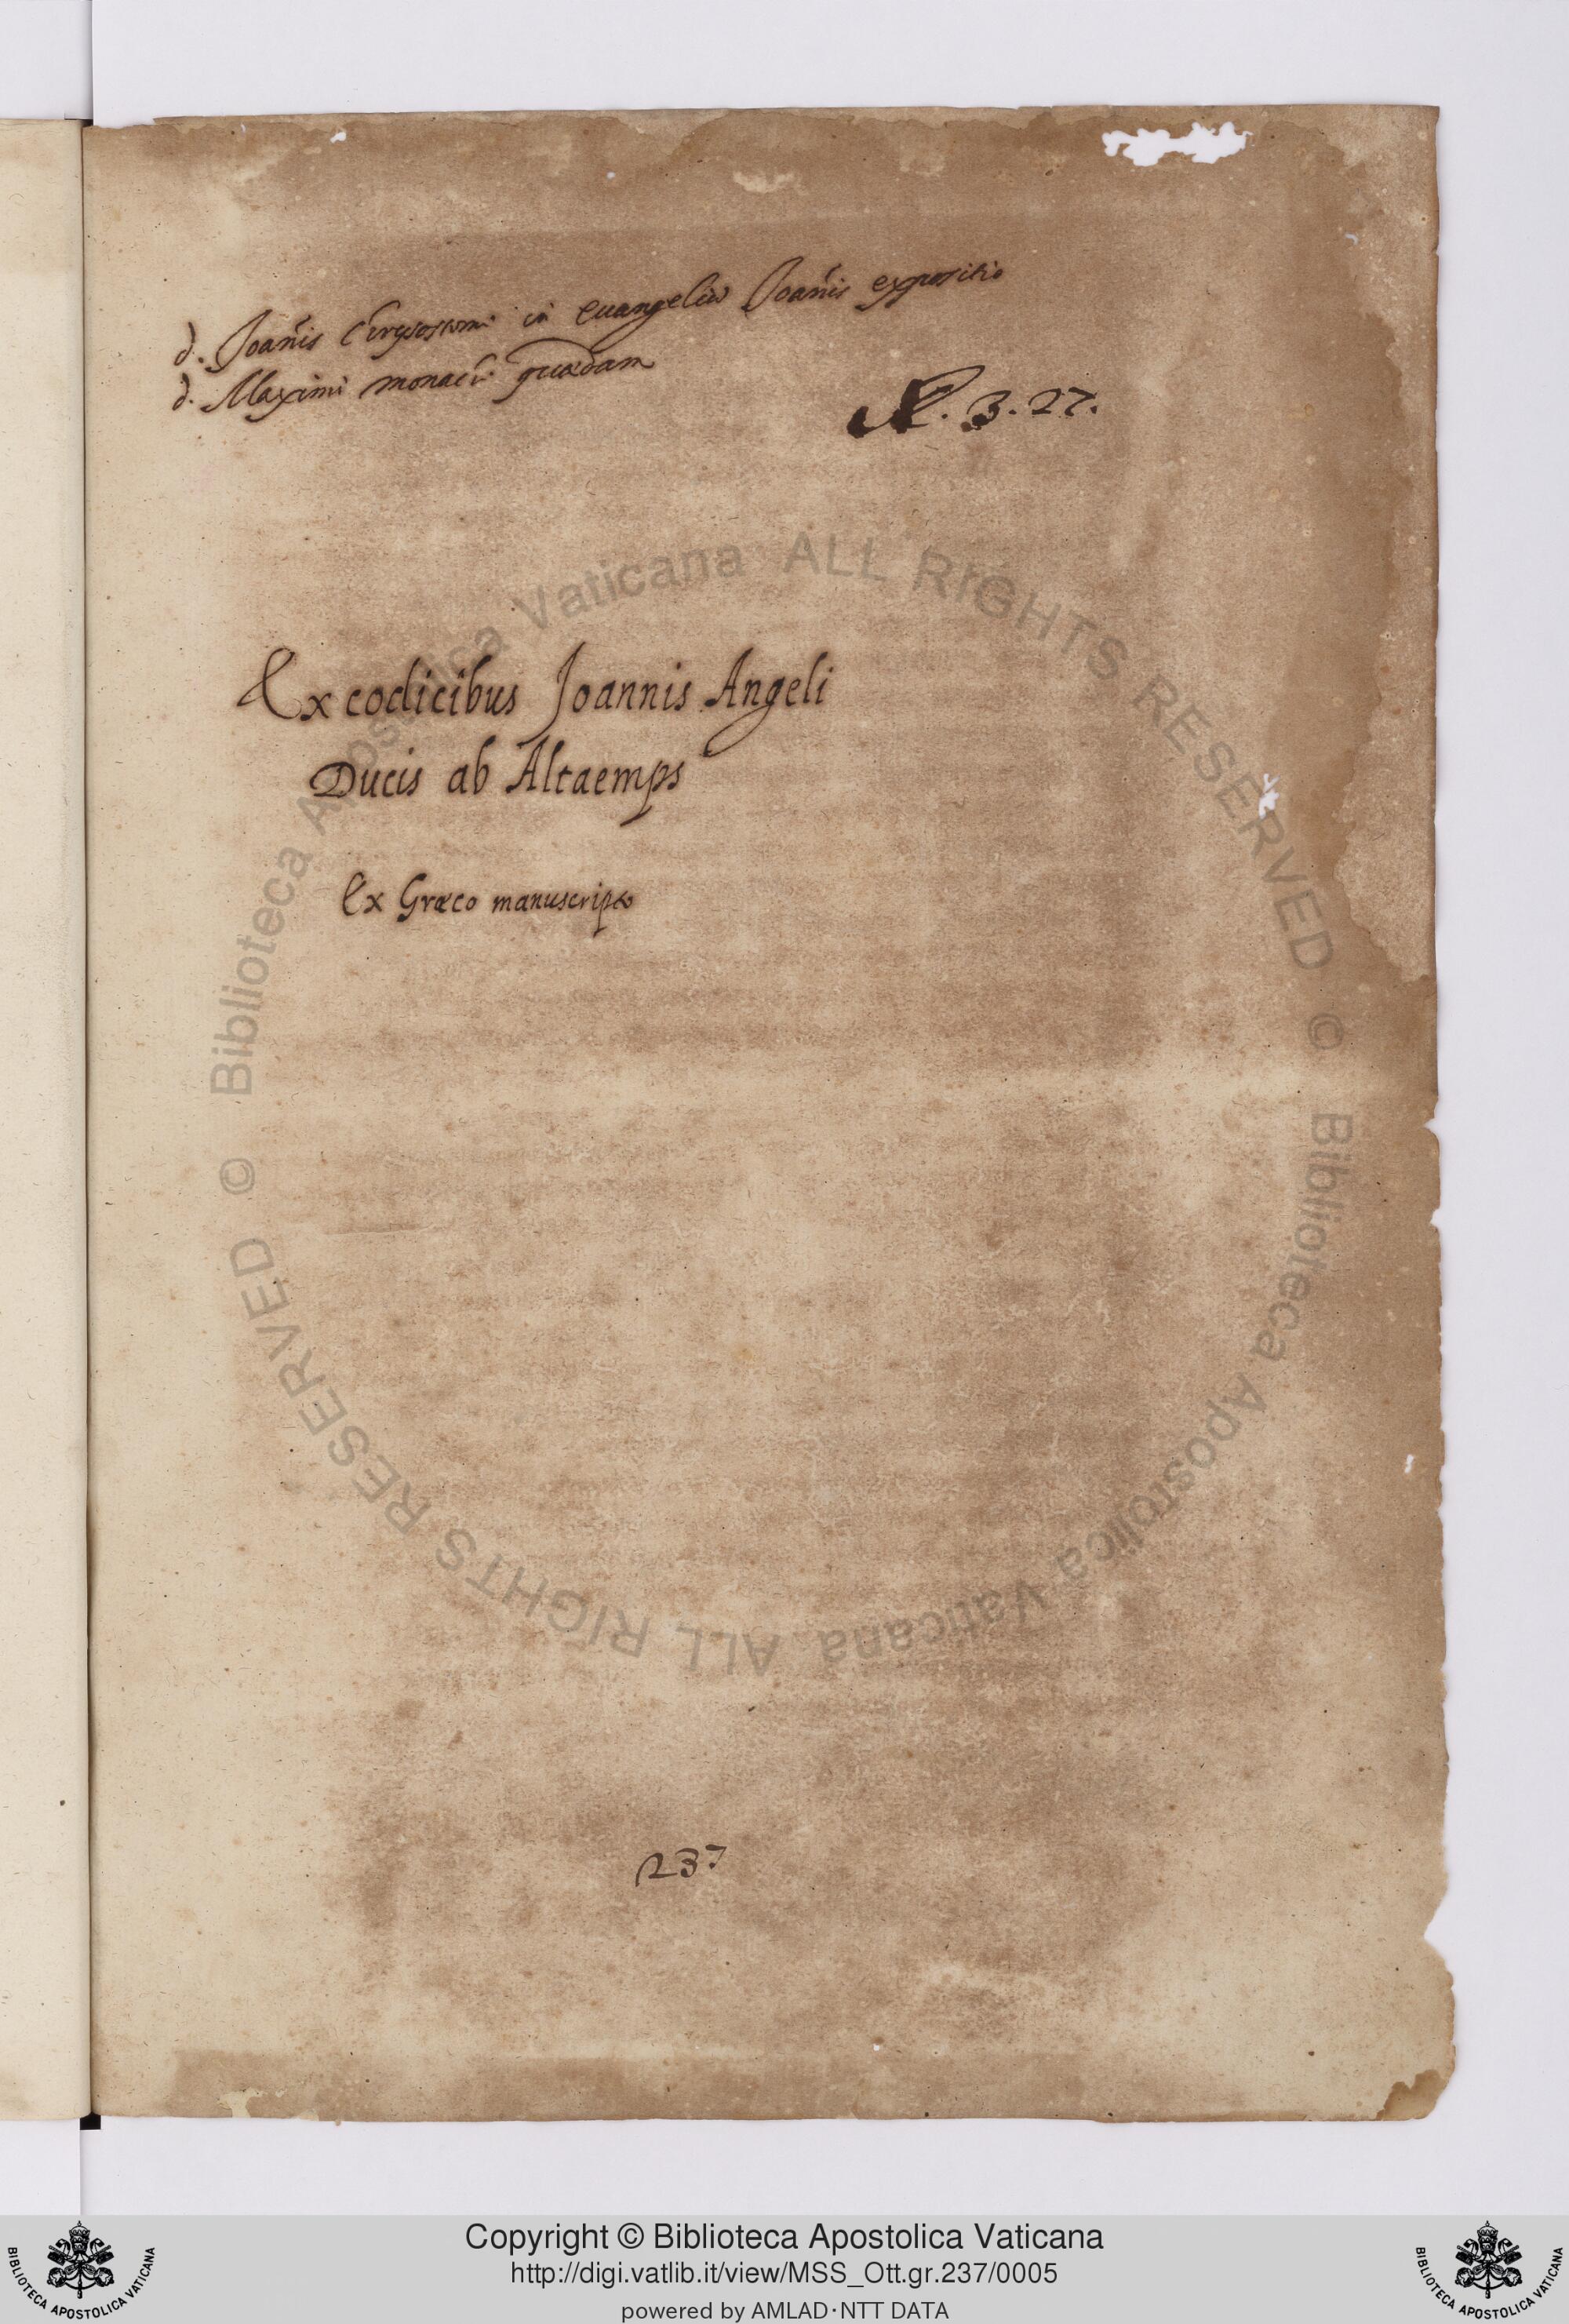 d. Joan̄is Chrysostomi in euangeliū Joan̄is expositio
d. Maximi monachi quædam
R. 3. 27.
Ex codicibus Joannis Angeli
Ducis ab Altaemps
Ex Græco manuscripto
237
© Biblioteca Apostolica Vaticana ALL RIGHTS RESERVED
© Biblioteca Apostolica Vaticana ALL RIGHTS RESERVED
Copyright © Biblioteca Apostolica Vaticana
http://digi.vatlib.it/view/MSS_Ott.gr.237/0005
powered by AMLAD·NTT DATA
BIBLIOTECA APOSTOLICA VATICANA
BIBLIOTECA APOSTOLICA VATICANA